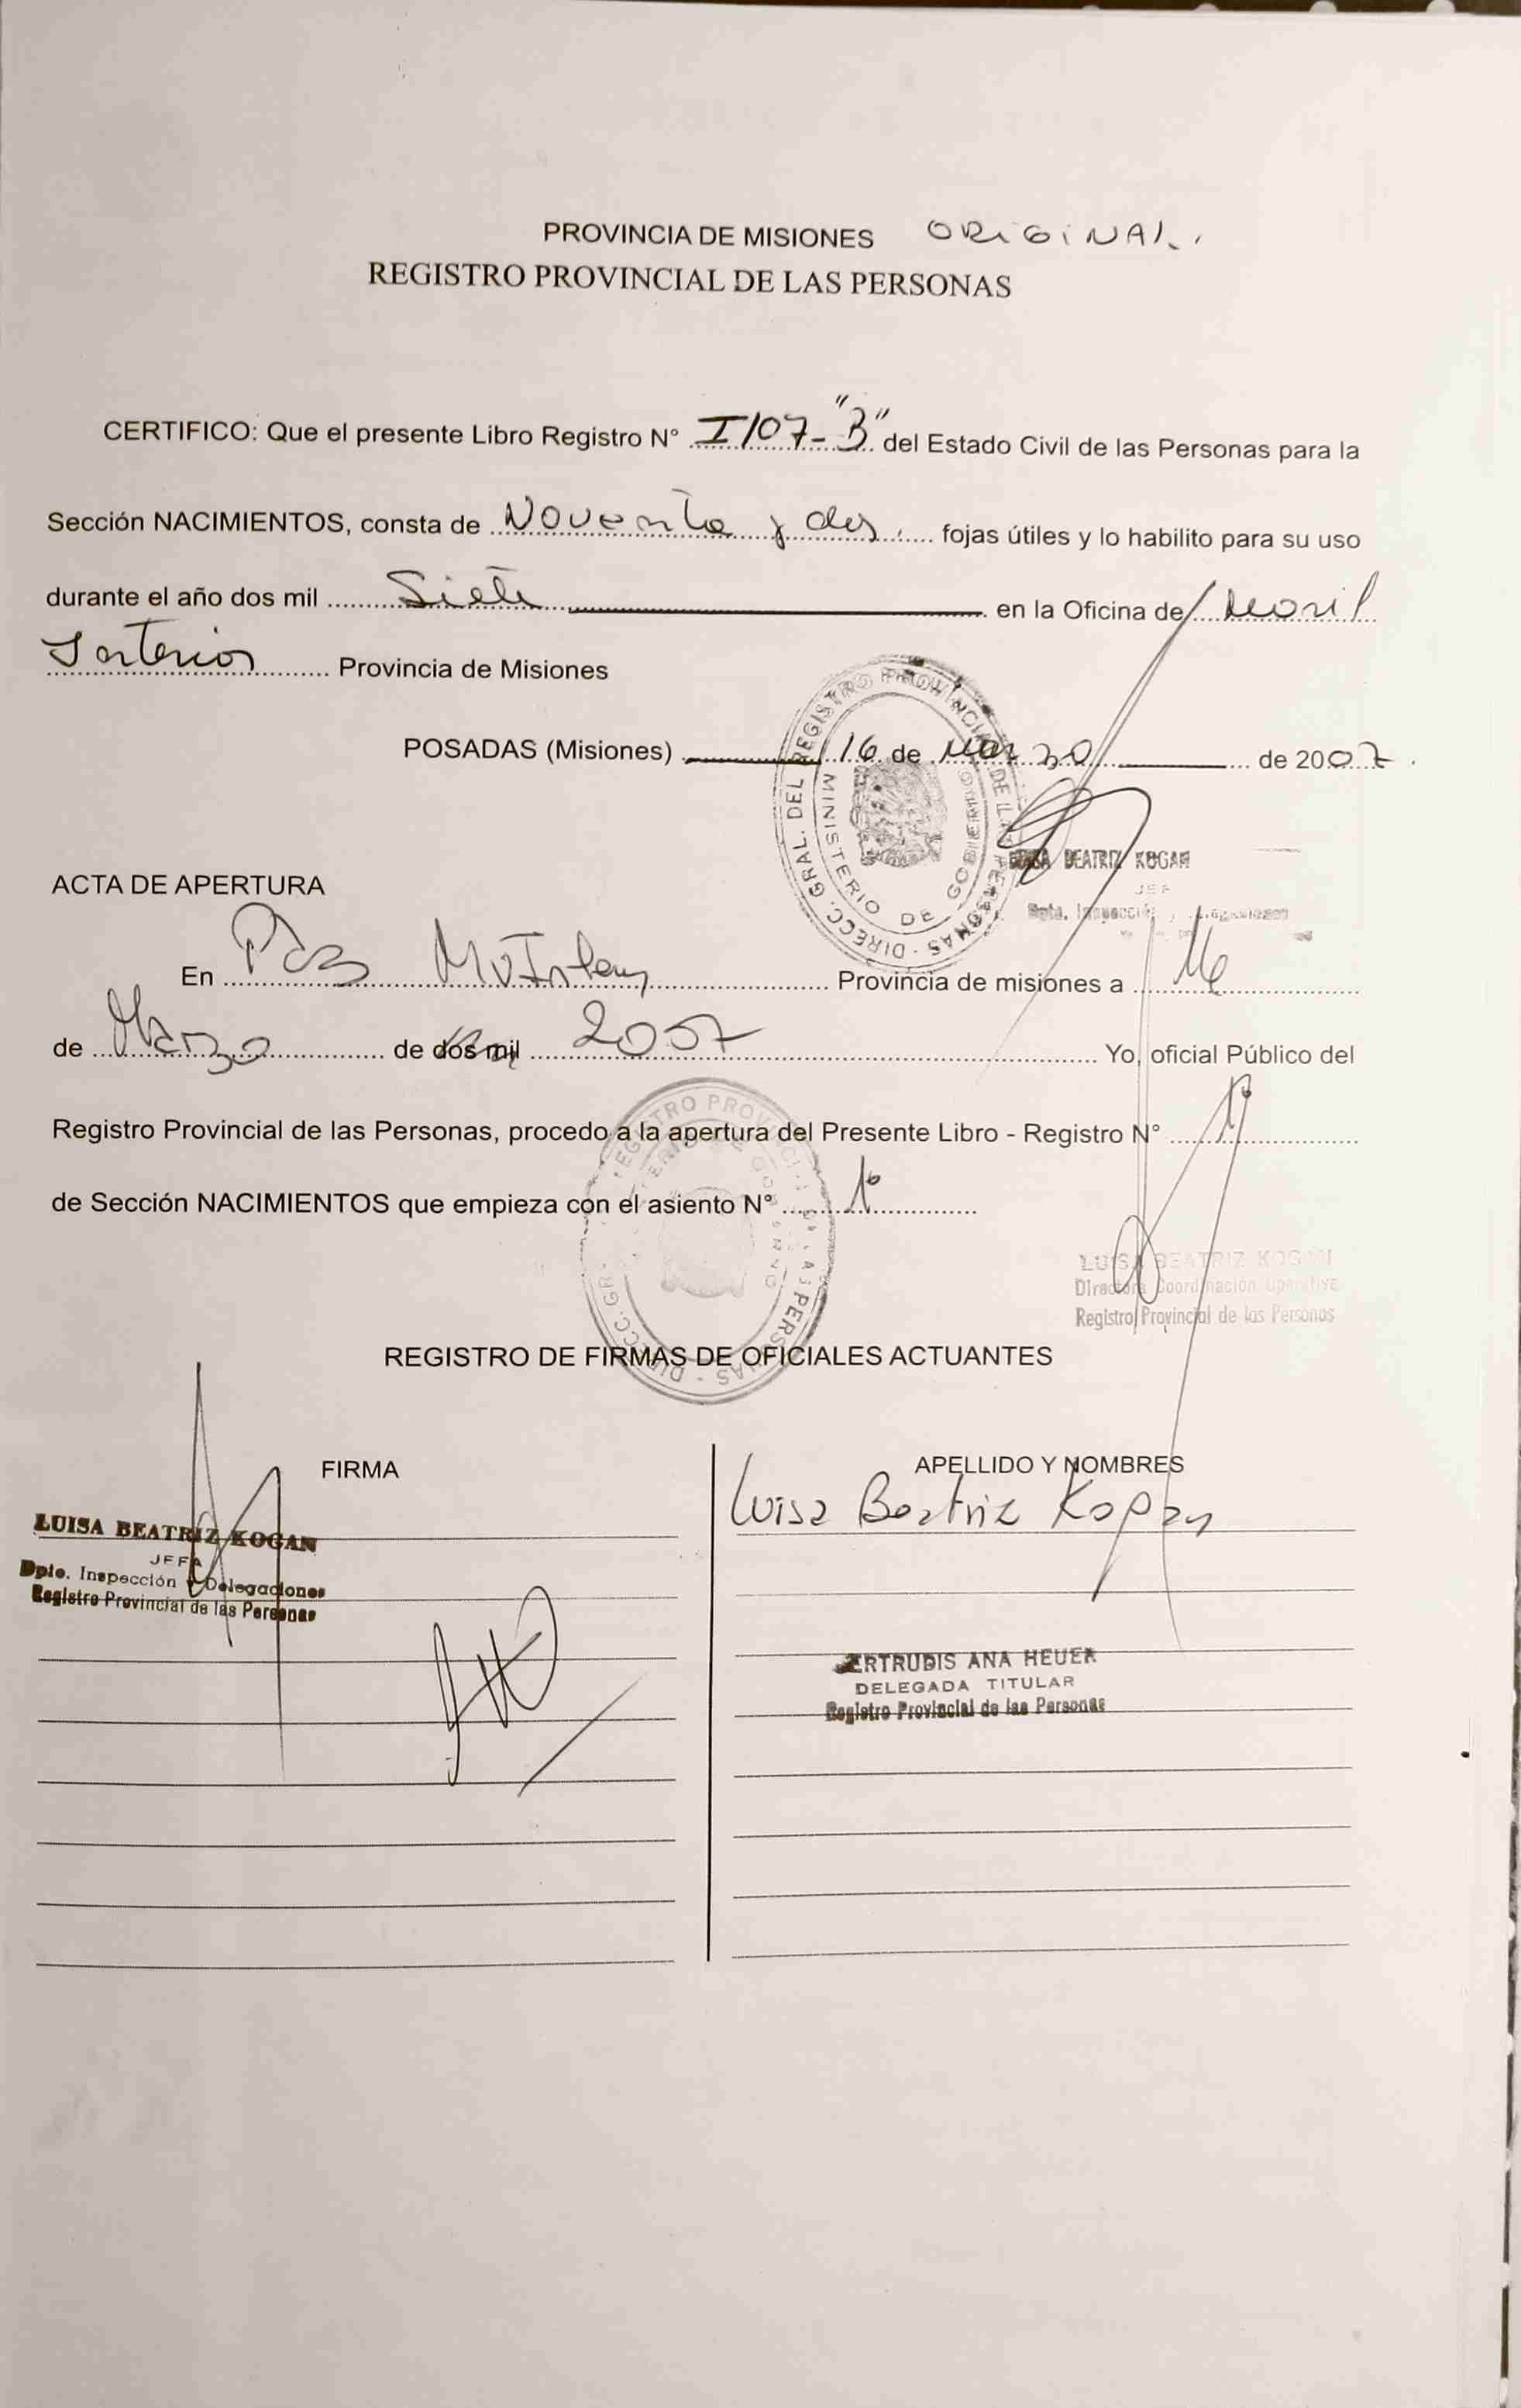 PROVINCIA DE MISIONES ORIGINAL.
REGISTRO PROVINCIAL DE LAS PERSONAS
CERTIFICO: Que el presente Libro Registro N° I/07-"B" del Estado Civil de las Personas para la
Sección NACIMIENTOS, consta de Noventa y dos. fojas útiles y lo habilito para su uso
durante el año dos mil Siete en la Oficina de Movil
Interior Provincia de Misiones
POSADAS (Misiones) 16 de Marzo de 2007.
DIRECC. GRAL. DEL REGISTRO PROVINCIAL DE LAS PERSONAS
MINISTERIO DE GOBIERNO
LUISA BEATRIZ KOGAN
JEFA
Dpto. Inspección
ACTA DE APERTURA
En Provincia de misiones a 16
de Marzo de dos mil 2007 Yo, oficial Público del
Registro Provincial de las Personas, procedo a la apertura del Presente Libro - Registro N° 1º
de Sección NACIMIENTOS que empieza con el asiento N° 1º
LUISA BEATRIZ KOGAN
Directora Coordinación Operativa
Registro Provincial de las Personas
REGISTRO DE FIRMAS DE OFICIALES ACTUANTES
FIRMA APELLIDO Y NOMBRES
LUISA BEATRIZ KOGAN Luisa Beatriz Kogan
JEFA
Dpto. Inspección y Delegaciones
Registro Provincial de las Personas
GERTRUDIS ANA HEUER
DELEGADA TITULAR
Registro Provincial de las Personas